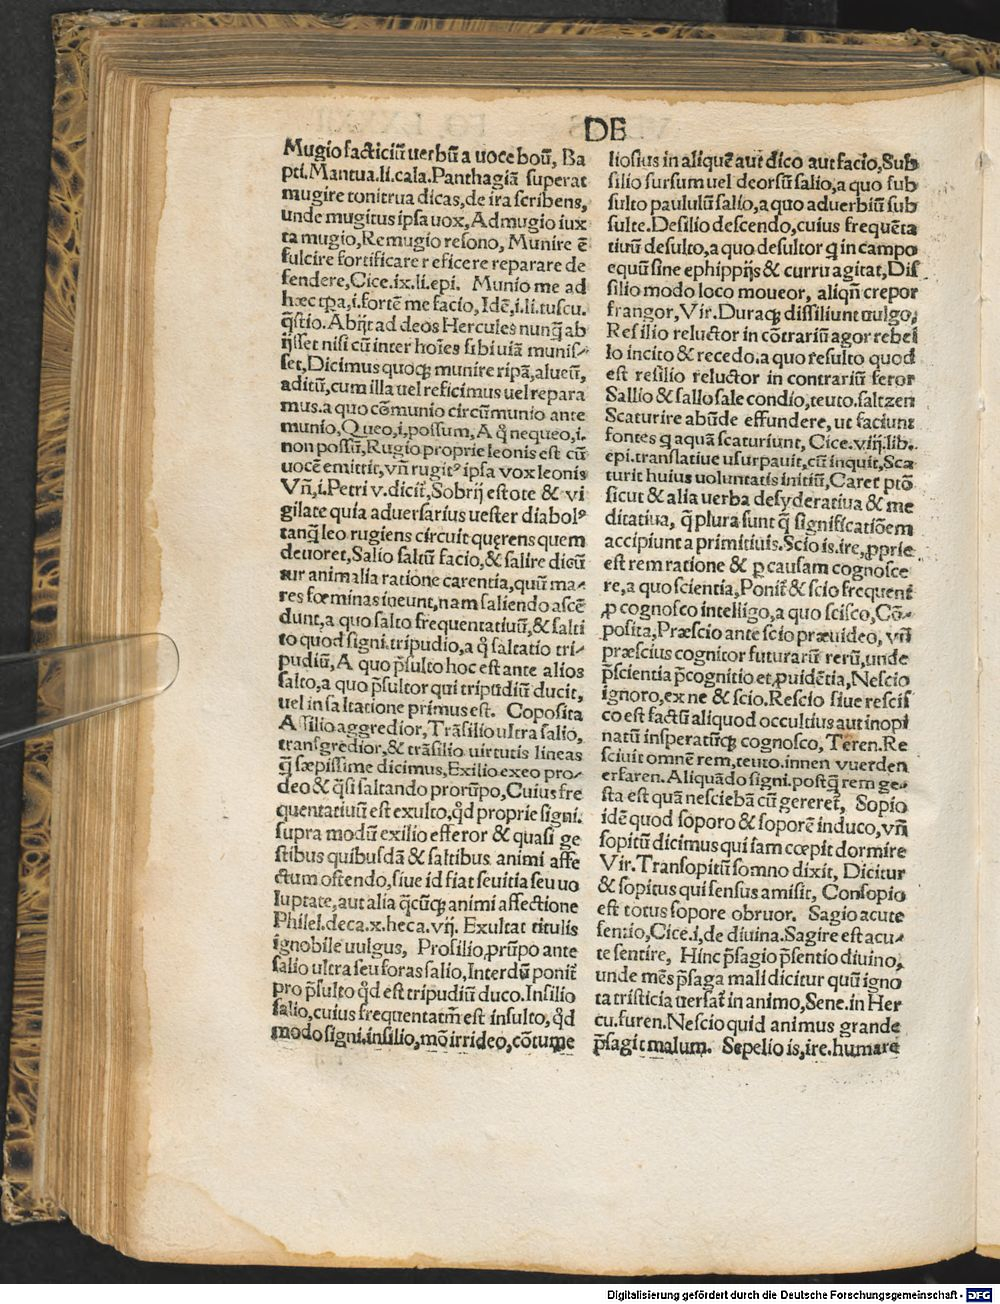 DE
Mugio facticiũ uerbũ a uoce boũ, Ba
pti. Mantua. li. cala. Panthagiã superat
mugire tonitrua dicas, de ira scribens,
unde mugitus ipsa uox, Admugio iux
ta mugio, Remugio resono, Munire ẽ
fulcire fortificare reficere reparare de
fendere, Cice. ix. li. epi. Munio me ad
hæc tp̃a, i. fortẽ me facio, Idẽ, i. li. tuscu.
q̃stio. Abijt ad deos Hercules nunq̃ ab
ijsset nisi cũ inter hoĩes sibi uiã munis-
set, Dicimus quoq; munire ripã, alueũ,
aditũ, cum illa uel reficimus uel repara
mus. a quo cõmunio circũmunio ante
munio, Queo, i. possum, A q̃ nequeo, i.
non possũ, Rugio proprie leonis est cũ
uocẽ emittit, vñ rugitꝰ ipsa vox leonis
Vñ, i. Petri v. dicit̃, Sobrij estote & vi
gilate quia aduersarius uester diabolꝰ
tanq̃ leo rugiens circuit querens quem
deuoret, Salio saltũ facio, & salire dicũ
tur animalia ratione carentia, quũ ma-
res fœminas ineunt, nam saliendo ascẽ
dunt, a quo salto frequentatiuũ, & salti
to quod signi. tripudio, a q̃ saltatio tri-
pudiũ, A quo p̃sulto hoc est ante alios
salto, a quo p̃sultor qui tripudiũ ducit,
uel in saltatione primus est. Coposita
Assilio aggredior, Trãsilio ultra salio,
transgredior, & trãsilio uirtutis lineas
q̃ sæpissime dicimus, Exilio exeo pro-
deo & q̃si saltando prorũpo, Cuius fre
quentatiuũ est exulto, qd̃ proprie signi.
supra modũ exilio efferor & quasi ge
stibus quibusdã & saltibus animi affe
ctum ostendo, siue id fiat seuitia seu uo
luptate, aut alia q̃cũq; animi affectione
Philel. deca. x. heca. vij. Exultat titulis
ignobile uulgus, Prosilio, prũpo ante
salio ultra seu foras salio, Interdũ ponit̃
pro p̃sulto qd̃ est tripudiũ duco. Insilio
salio, cuius frequentatm̃ est insulto, qd̃
modo signi. insilio, mõ irrideo, cõtume
liosius in aliquẽ aut dico aut facio, Sub
silio sursum uel deorsũ salio, a quo sub
sulto paululũ salio, a quo aduerbiũ sub
sulte. Desilio descendo, cuius frequẽta
tiuũ desulto, a quo desultor q̃ in campo
equũ sine ephippijs & curru agitat, Dis
silio modo loco moueor, aliqñ crepor
frangor, Vir. Duraq; dissiliunt uulgo,
Resilio reluctor in cõtrariũ agor rebel
lo incito & recedo. a quo resulto quod
est resilio reluctor in contrariũ feror
Sallio & sallo sale condio, teuto. saltzen
Scaturire abũde effundere, ut faciunt
fontes q̃ aquã scaturiunt, Cice. viij. lib.
epi. translatiue usurpauit, cũ inquit, Sca
turit huius uoluntatis initiũ, Caret ptõ
sicut & alia uerba desyderatiua & me
ditatiua, q̃ plura sunt q̃ significatiõem
accipiunt a primitiuis. Scio is. ire, ꝓprie
est rem ratione & ꝑ causam cognosce
re, a quo scientia, Ponit̃ & scio frequent̃
ꝓ cognosco intelligo, a quo scisco, Cõ-
posita, Præscio ante scio præuideo, vñ
præscius cognitor futurarũ rerũ, unde
p̃scientia p̃cognitio et ꝓuidẽtia, Nescio
ignoro, ex ne & scio. Rescio siue rescis
co est factũ aliquod occultius aut inopi
natũ insperatũq; cognosco, Teren. Re
sciuit omnẽ rem, teuto. innen vuerden
erfaren. Aliquãdo signi. postq̃ rem ge-
sta est quã nesciebã cũ gereret̃, Sopio
idẽ quod soporo & soporẽ induco, vñ
sopitũ dicimus qui iam cœpit dormire
Vir. Transopitũ somno dixit, Dicitur
& sopitus qui sensus amisit, Consopio
est totus sopore obruor. Sagio acute
sentio, Cice. i, de diuina. Sagire est acu-
te sentire, Hinc p̃sagio p̃sentio diuino,
unde mẽs p̃saga mali dicitur quũ igno
ta tristicia uersat̃ in animo, Sene. in Her
cu. furen. Nescio quid animus grande
p̃sagit malum. Sepelio is, ire. humare
Digitalisierung gefördert durch die Deutsche Forschungsgemeinschaft - DFG